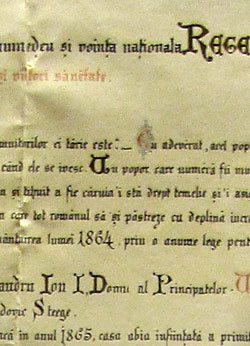 umnedeu și voința națională REGE
și viitori sănătate.
munitorilor ei tărie este:_ Cu adeverat, acel popo
când ele se ivesc. Un popor care numeră fii mu
și tihnit a fie căruia-i stă drept temelie și-i asi
n care tot românul să și păstreze cu deplină incre
mântuirea lumei 1864. prin o anume lege pent
andru Ion I, Domn al Principatelor. U
dovic Steege.
acă în anul 1865, casa abia înființată a primi